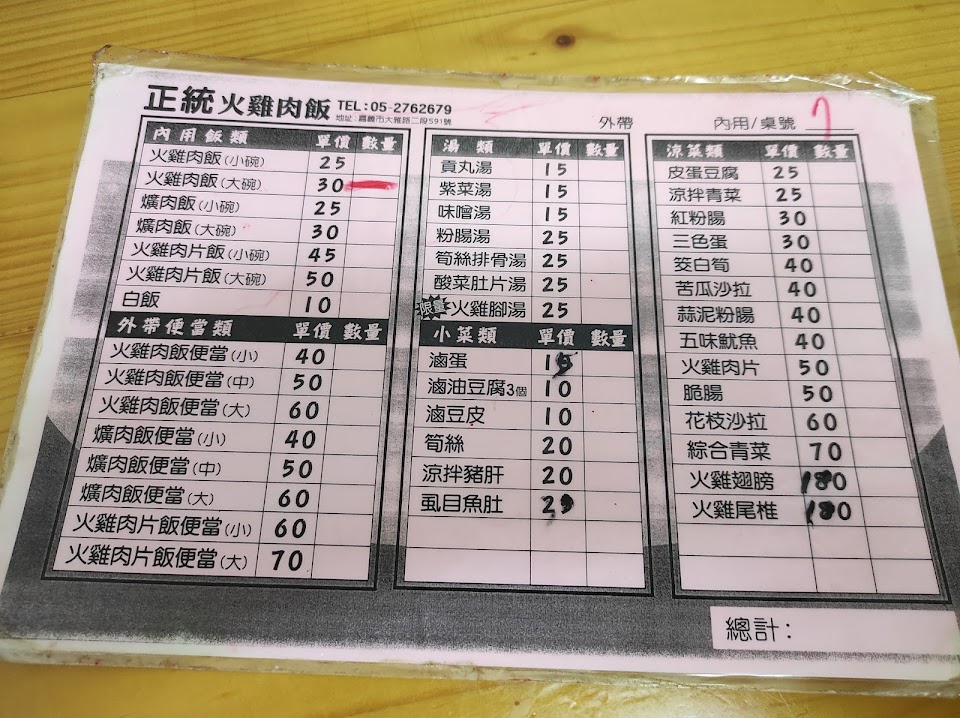 正統火雞肉飯 TEL:05-2762679
地址:嘉義市大雅路二段591號
外帶 內用/桌號 7
內用飯類 單價 數量
火雞肉飯(小碗) 25
火雞肉飯(大碗) 30
爌肉飯(小碗) 25
爌肉飯(大碗) 30
火雞肉片飯(小碗) 45
火雞肉片飯(大碗) 50
白飯 10
外帶便當類 單價 數量
火雞肉飯便當(小) 40
火雞肉飯便當(中) 50
火雞肉飯便當(大) 60
爌肉飯便當(小) 40
爌肉飯便當(中) 50
爌肉飯便當(大) 60
火雞肉片飯便當(小) 60
火雞肉片飯便當(大) 70
湯類 單價 數量
貢丸湯 15
紫菜湯 15
味噌湯 15
粉腸湯 25
筍絲排骨湯 25
酸菜肚片湯 25
限量 火雞腳湯 25
小菜類 單價 數量
滷蛋
滷油豆腐3個 10
滷豆皮 10
筍絲 20
涼拌豬肝 20
虱目魚肚
涼菜類 單價 數量
皮蛋豆腐 25
涼拌青菜 25
紅粉腸 30
三色蛋 30
筊白筍 40
苦瓜沙拉 40
蒜泥粉腸 40
五味魷魚 40
火雞肉片 50
脆腸 50
花枝沙拉 60
綜合青菜 70
火雞翅膀
火雞尾椎
總計: